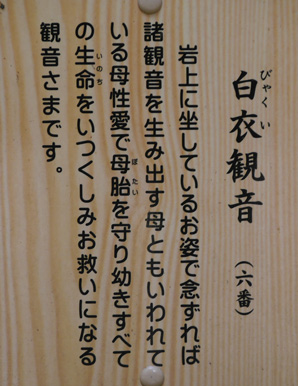 白衣観音（六番）
びゃくい
岩上に坐しているお姿で念ずれば
諸観音を生み出す母ともいわれて
いる母性愛で母胎を守り幼きすべて
ぼたい
の生命をいつくしみお救いになる
いのち
観音さまです。